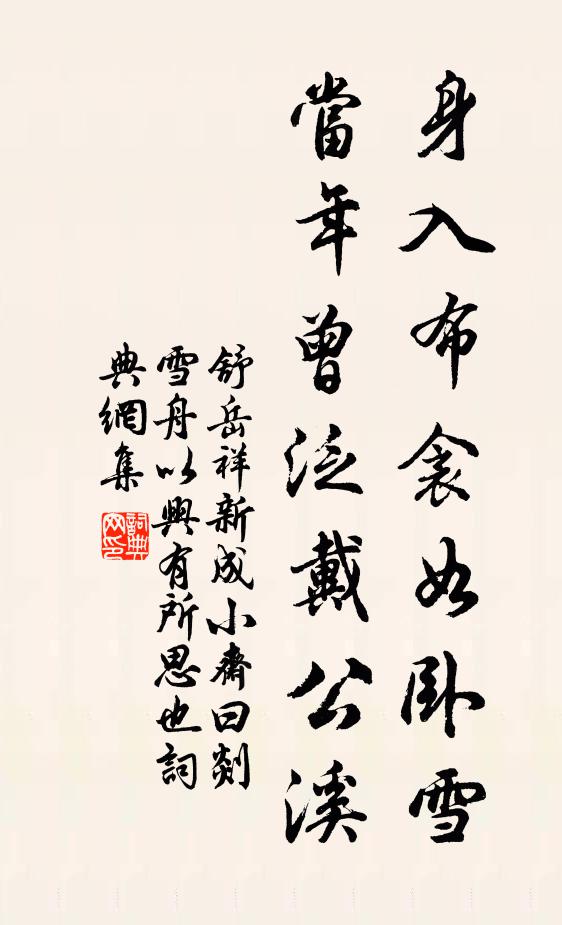 身入布衾如卧雪
當年曾泛戴公溪
舒岳祥新成小齋曰剡
雪舟以興有所思也詞
典網集
詞典
网印